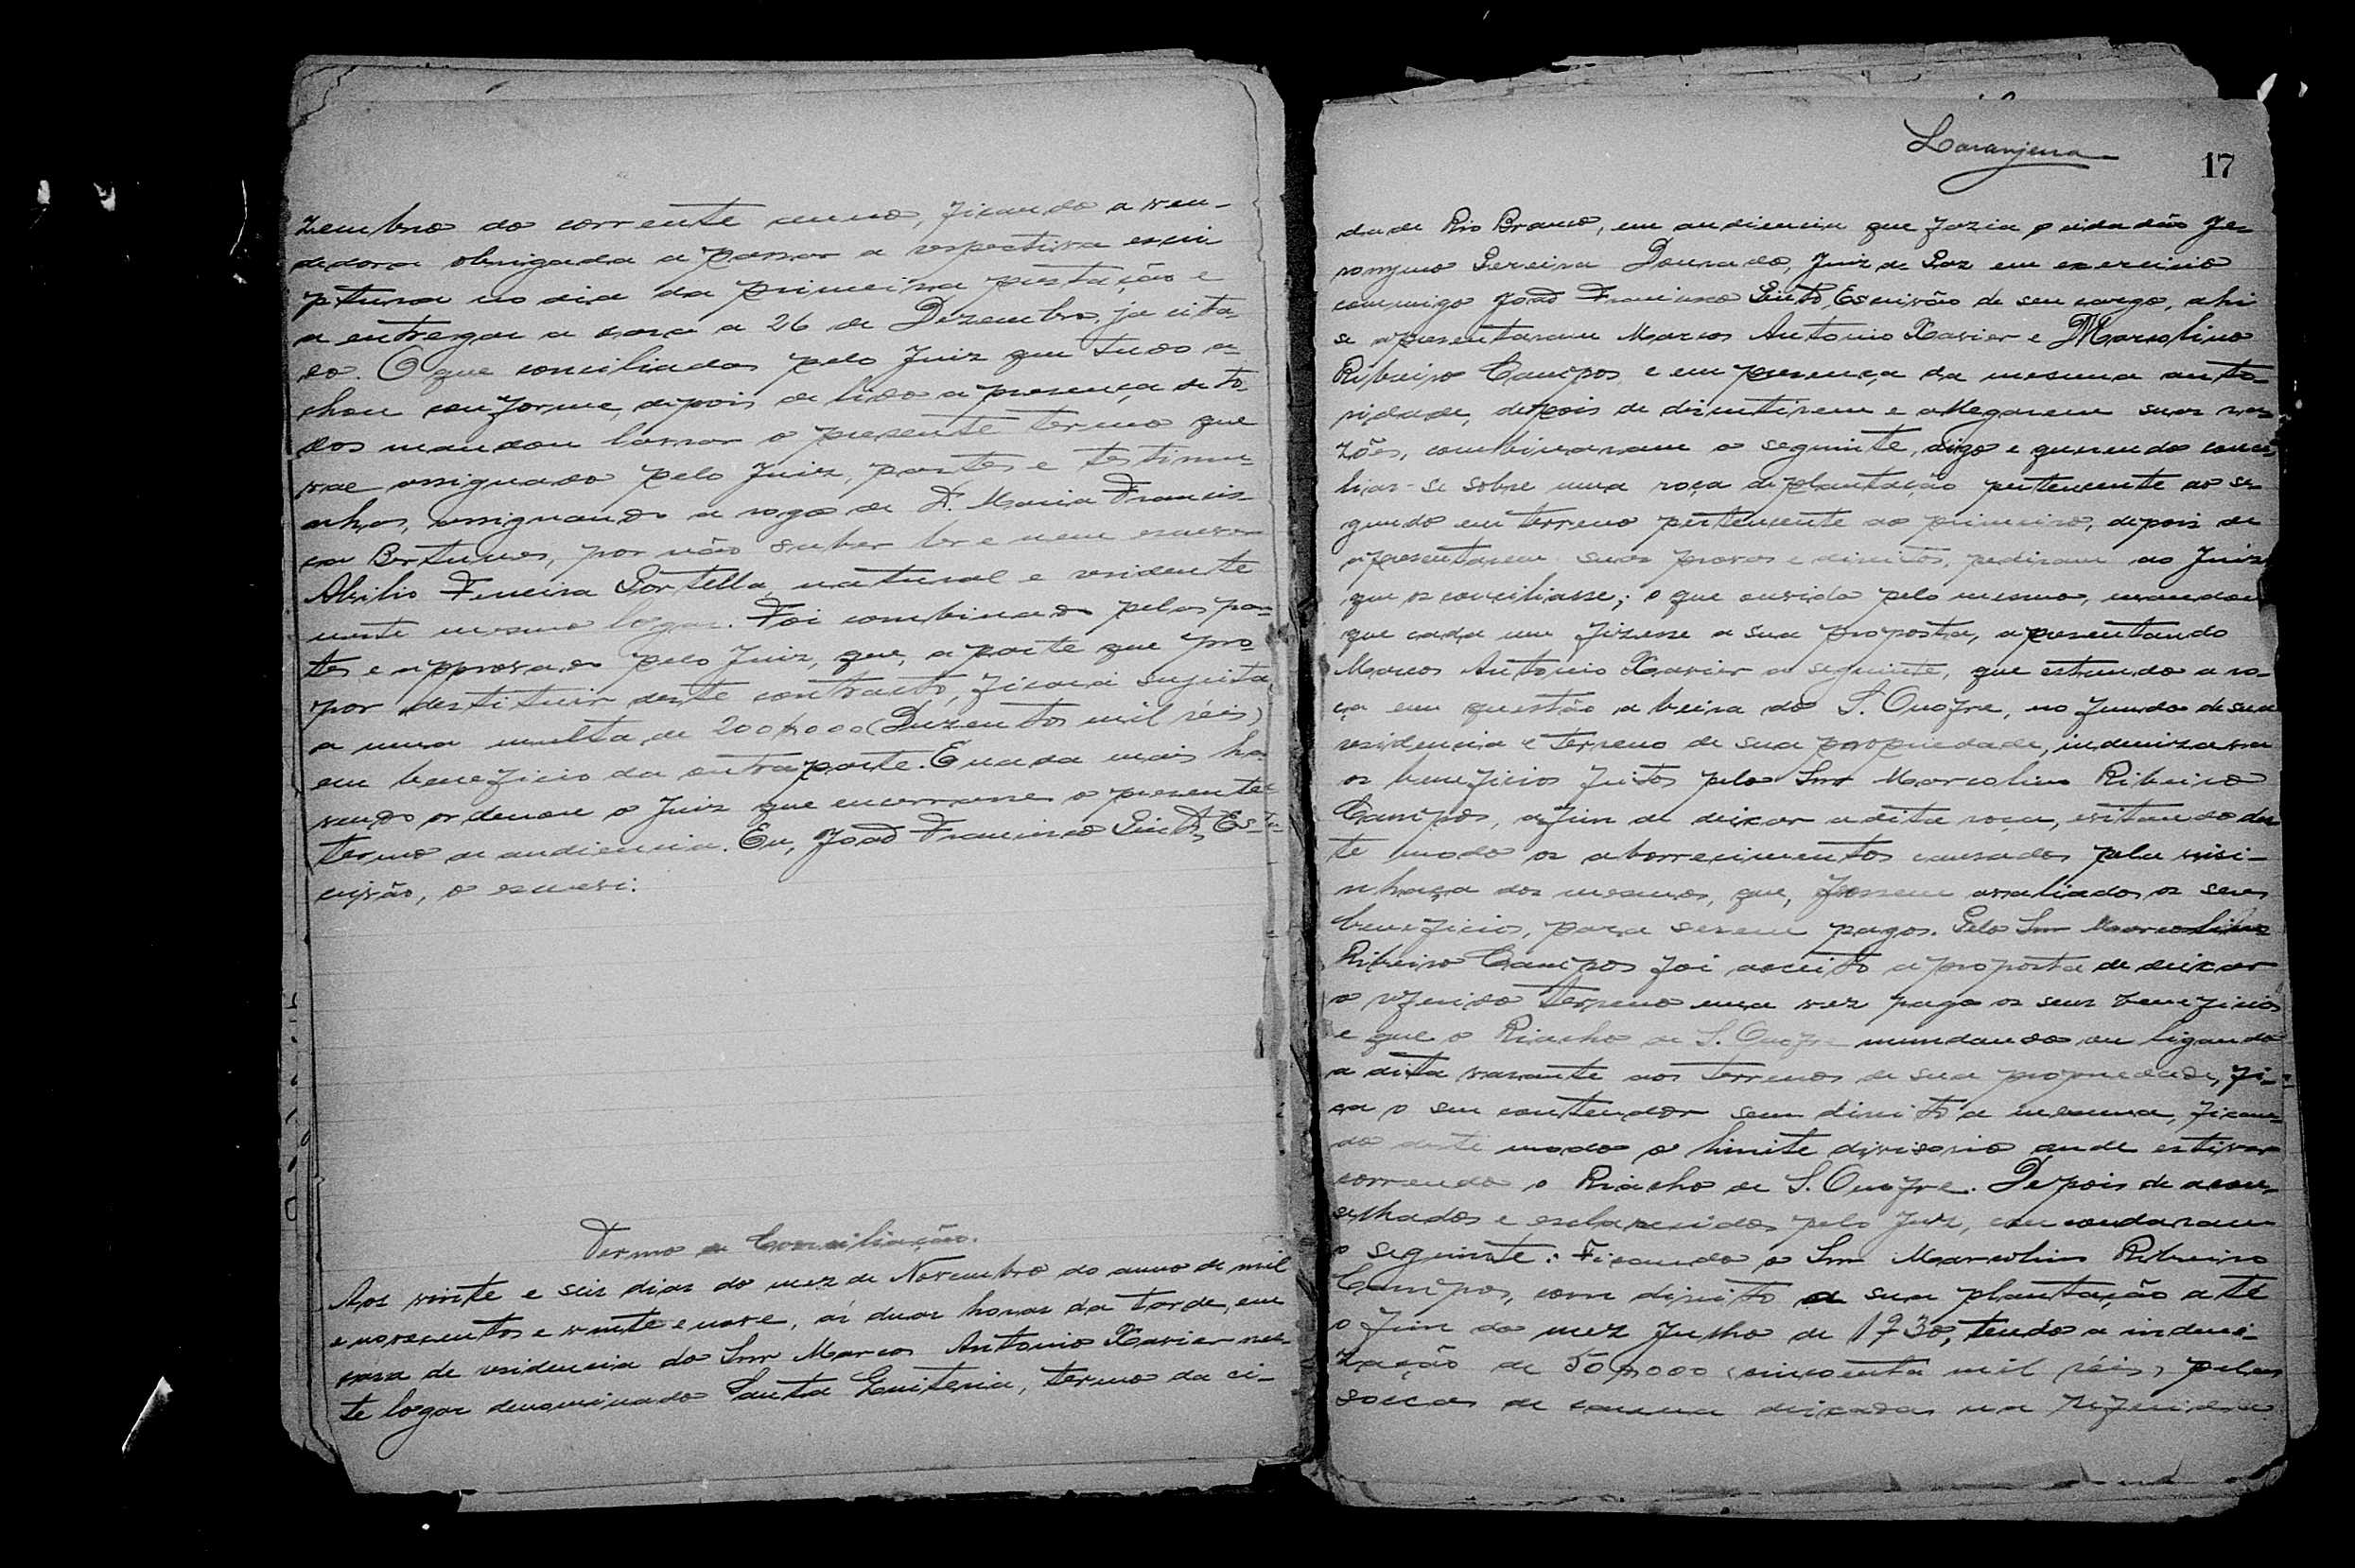 zembro do corrente anno, ficando a ven-
dedora obrigada a passar a respectiva escri
ptura no dia da primeira prestação e
a entregar a casa a 26 de Dezembro, ja cita-
do. O que conciliados pelo Juiz que tudo a-
chou conforme, depois de lido a presença de to-
dos mandou lavrar o presente termo que
vae assignado pelo Juiz, partes e testimu-
nhas, assignando a rogo de D. Maria Francis
ca, por não saber ler e nem escrever
Abilio Ferreira Portella, natural e residente
neste mesmo logar. Foi combinado pelas par-
tes e approvado pelo Juiz, que, a parte que pro-
por destituir deste contracto, ficará sujeita,
a uma multa de 200$000 (Duzentos mil réis)
em beneficio da outra parte. E nada mais ha-
vendo ordenou o Juiz que encerrasse o presente
termo de audiencia. Eu, João Francisco Pinto, Es-
crivão, o escrevi.
Termo de Conciliação.
Aos vinte e seis dias do mez de Novembro do anno de mil
e novecentos e vinte e nove, ás duas horas da tarde, em
casa de residencia do Snr Marcos Antonio Xavier nes-
te logar denominado Santa Quiteria, termo da ci-
Laranjeira
17
dade Rio Branco, em audiencia que fazia o cidadão Je-
ronymo Pereira Dourado, Juiz de Paz em exercicio
commigo João Francisco Pinto, Escrivão de seu cargo, ahi
se apresentaram Marcos Antonio Xavier e Marcolino
Ribeiro Campos, e em presença da mesma auto-
ridade, depois de discutirem e allegarem suas ra-
zões, combinaram o seguinte, digo e querendo conci-
liar-se sobre uma roça de plantação pertencente ao se-
gundo em terreno pertencente ao primeiro, depois de
apresentarem suas provas e direitos, pediram ao Juiz
que os conciliasse; o que ouvido pelo mesmo, mandou
que cada um fizesse a sua proposta, apresentando
Marcos Antonio Xavier a seguinte, que estando a ro-
ça em questão a beira do S. Onofre, no fundo de sua
residencia e terreno de sua propriedade, indenizava
os beneficios feitos pelo Snr Marcolino Ribeiro
Campos, afim de deixar a dita roça, evitando des-
te modo os aborrecimentos causados pela visi-
nhança dos mesmos, que, fossem avaliados os seus
beneficios, para serem pagos. Pelo Snr Marcolino
Ribeiro Campos foi acceito a proposta de deixar
o referido terreno uma vez pago os seus beneficios
e que o Riacho de S. Onofre mundando ou ligando
a dita vasante aos terrenos de sua propriedade, fi-
ca o seu contendor sem direito a mesma, fican-
do deste modo o limite divisorio onde estiver
correndo o Riacho de S. Onofre. Depois de acon-
selhados e esclarecidos pelo Juiz, concordaram
o seguinte: Ficando o Snr Marcolino Ribeiro
Campos, com direito a sua plantação até
o fim do mez Julho de 1930, tendo a indeni-
zação de 50$000 (cincoenta mil réis) pelas
socas de canna deixadas na referida